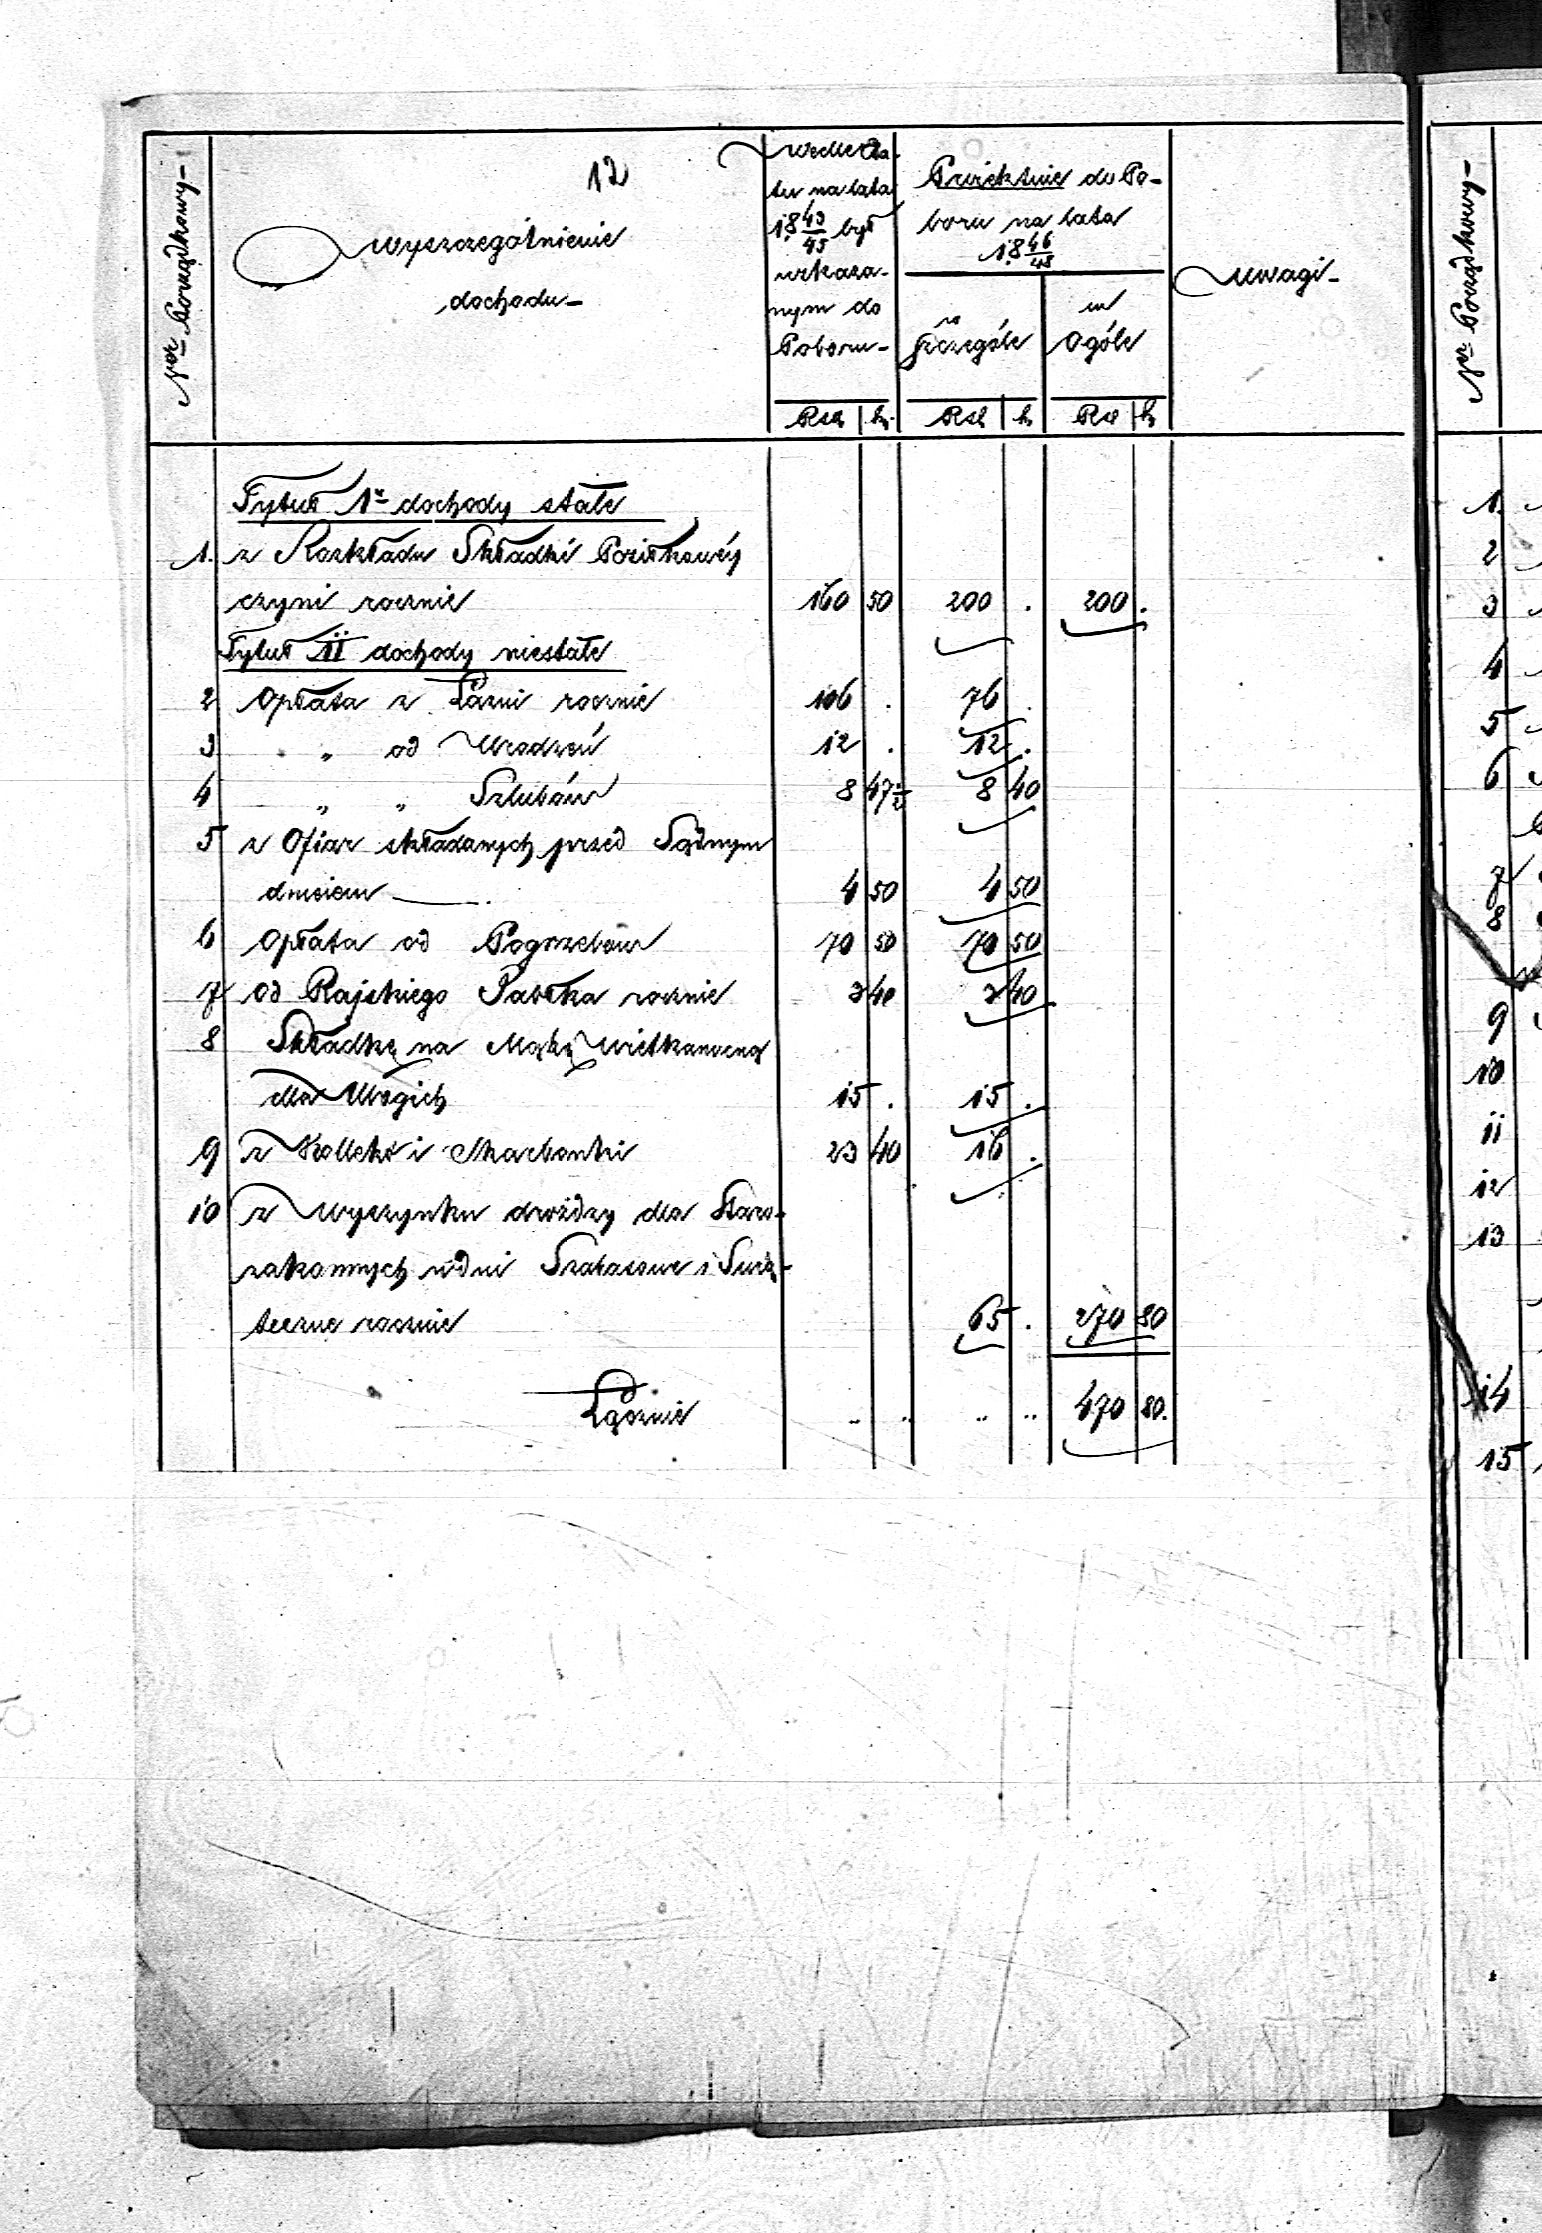 12
Wyszczególnienie
dochodu
Nr Porządkowy
Wedle Eta-
tu na lata
18 43/45 był
wskaza-
nym do
Poboru
Projektuie do Po-
boru na lata
18 46/48
w
szczególe
w
Ogóle
Uwagi
Rsr k. Rsr k Rsr k
Tytuł 1y dochody stałe
1. z Rozkładu Składki Posiłkowéj
czyni rocznie 160 50 200 . 200 .
Tytuł II dochody niestałe
2 Opłata z Łaźni rocznie 106 . 76 .
3 " od Urodzeń 12 . 12 .
4 " " Szlubów 8 47½ 8 40
5 z Ofiar składanych przed Sądnym
dniem 4 50 4 50
6 Opłata od Pogrzebów 70 50 70 50
7 od Rajskiego Jabłka rocznie 3 40 3 40
8 Składkę na Mąkę wielkanocną
dla Ubogich 15 . 15 .
9 z Kollekt i Skarbonki 23 40 16 .
10 z Wyszynku drożdży dla Staro-
zakonnych w dni Szabasowe i Świą-
teczne rocznie 65 . 270 80
Łącznie .. .. .. .. 470 80.
Nr Porządkowy
1.
2
3
4
5
6
7
8
9
10
11
12
13
14
15